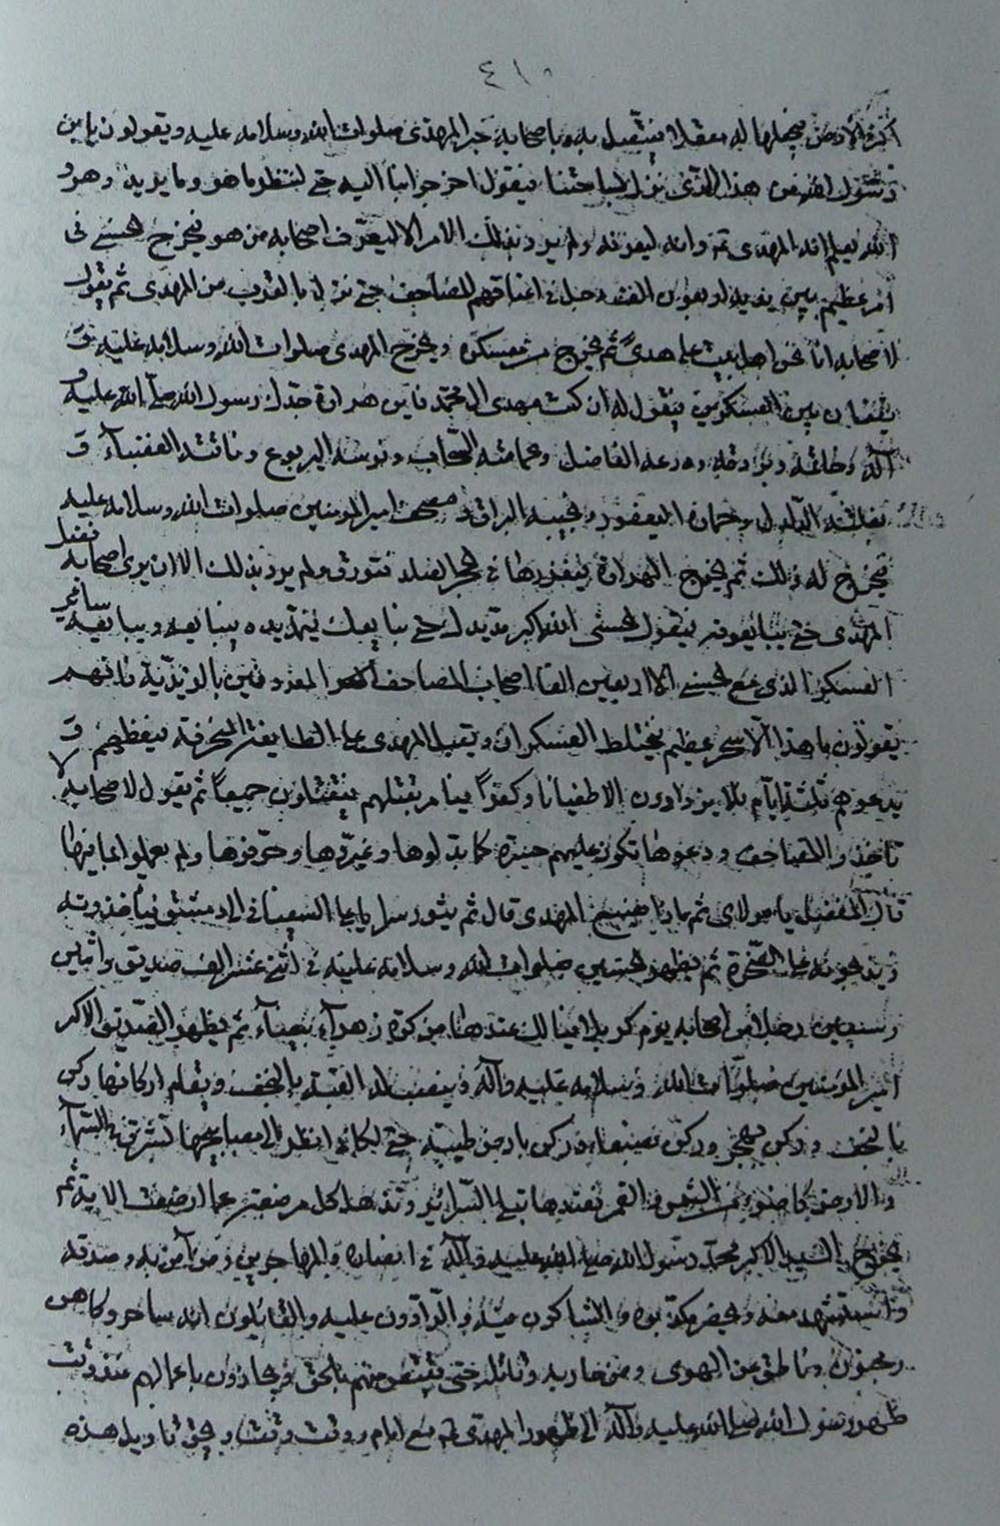 ٤١٠
اكثر الارض فيجعلها له معقلا فيتصل به وباصحابه خبر المهدى صلوات الله وسلامه عليه ويقولون يا بن
رسول الله من هذا الذى نزل بساحتنا فيقول اخرجوا بنا اليه حتى لننظر ما هو وما يريد وهو و
الله يعلم انه المهدى ثم وانه ليعرفه ولم يرد بذلك الامر الا ليعرف اصحابه من هو فيخرج الحسنى فى
امر عظيم بين يديه اربعون الف رجل فى اعناقهم المصاحف حتى نزل بالقرب من المهدى ثم يقول
لاصحابه انا نحن اهل بيت على هدى ثم يخرج من معسكره ويخرج المهدى صلوات الله وسلامه عليه و
يقفان بين العسكرين فيقول له ان كنت مهدى آل محمد فاين هراوة جدك رسول الله صلى الله عليه و
آله وخاتمه وبردته ودرعه الفاضل وعمامته السحاب وفرسه اليربوع وناقته العضباء و
بغلته الدلدل وحماره اليعفور ونجيبه البراق ومصحف امير المومنين صلوات الله وسلامه عليه
فيخرج له ذلك ثم يخرج الهراوة فيغرزها فى الحجر الصلد فتورق ولم يرد بذلك الا ان يرى اصحابه فضل
المهدى حتى يبايعونه فيقول الحسنى الله اكبر مد يدك حتى نبايعك فيمد يده فيبايعه ويبايعه ساير
العسكر الذى مع الحسنى الا اربعين الفا اصحاب المصاحف المعروفين بالزيدية فانهم
يقولون ما هذا الا سحر عظيم فيختلط العسكران ويقبل المهدى على الطايفة المنحرفة فيعظهم و
يدعوهم ثلثة ايام فلا يزدادون الا طغيانا وكفرا فيامر بقتلهم فيقتلون جميعا ثم يقول لاصحابه لا
تاخذوا المصاحف ودعوها تكون عليهم حسرة كما بدلوها وغيروها وحرفوها ولم يعملوا بما فيها
قال المفضل يا مولاى ثم ماذا يصنع المهدى قال ثم يثور سرايا على السفيانى الى دمشق فياخذونه
ويذبحونه على الصخرة ثم يظهر الحسين صلوات الله وسلامه عليه فى اثنى عشر الف صديق واثنين
وسبعين رجلا من اصحابه يوم كربلا فيالك عندها من كرة زهراء بيضاء ثم يظهر الصديق الاكبر
امير المؤمنين صلوات الله وسلامه عليه وآله وينصب له القبة بالنجف ويقام اركانها ركن
بالنجف وركن بهجر وركن بصنعا وركن بارض طيبة حتى لكانى انظر الى مصابيحها تشرق فى السماء
والارض كاضوء من الشمس والقمر فعندها تبلى السرائر وتذهل كل مرضعة عما ارضعت الاية ثم
يخرج السيد الاكبر محمد رسول الله صلى الله عليه وآله فى انصاره والمهاجرين ومن آمن به وصدقه
واستشهد معه ويحضر مكذبوه والشاكون فيه والرادون عليه والقائلون انه ساحر وكاهن
ومجنون وناطق عن الهوى ومن حاربه وقاتله حتى يقتص منهم بالحق ويجازون باعمالهم منذ وقت
ظهور رسول الله صلى الله عليه وآله الى ظهور المهدى مع امام امام ووقت وقت ويحق تاويل هذه